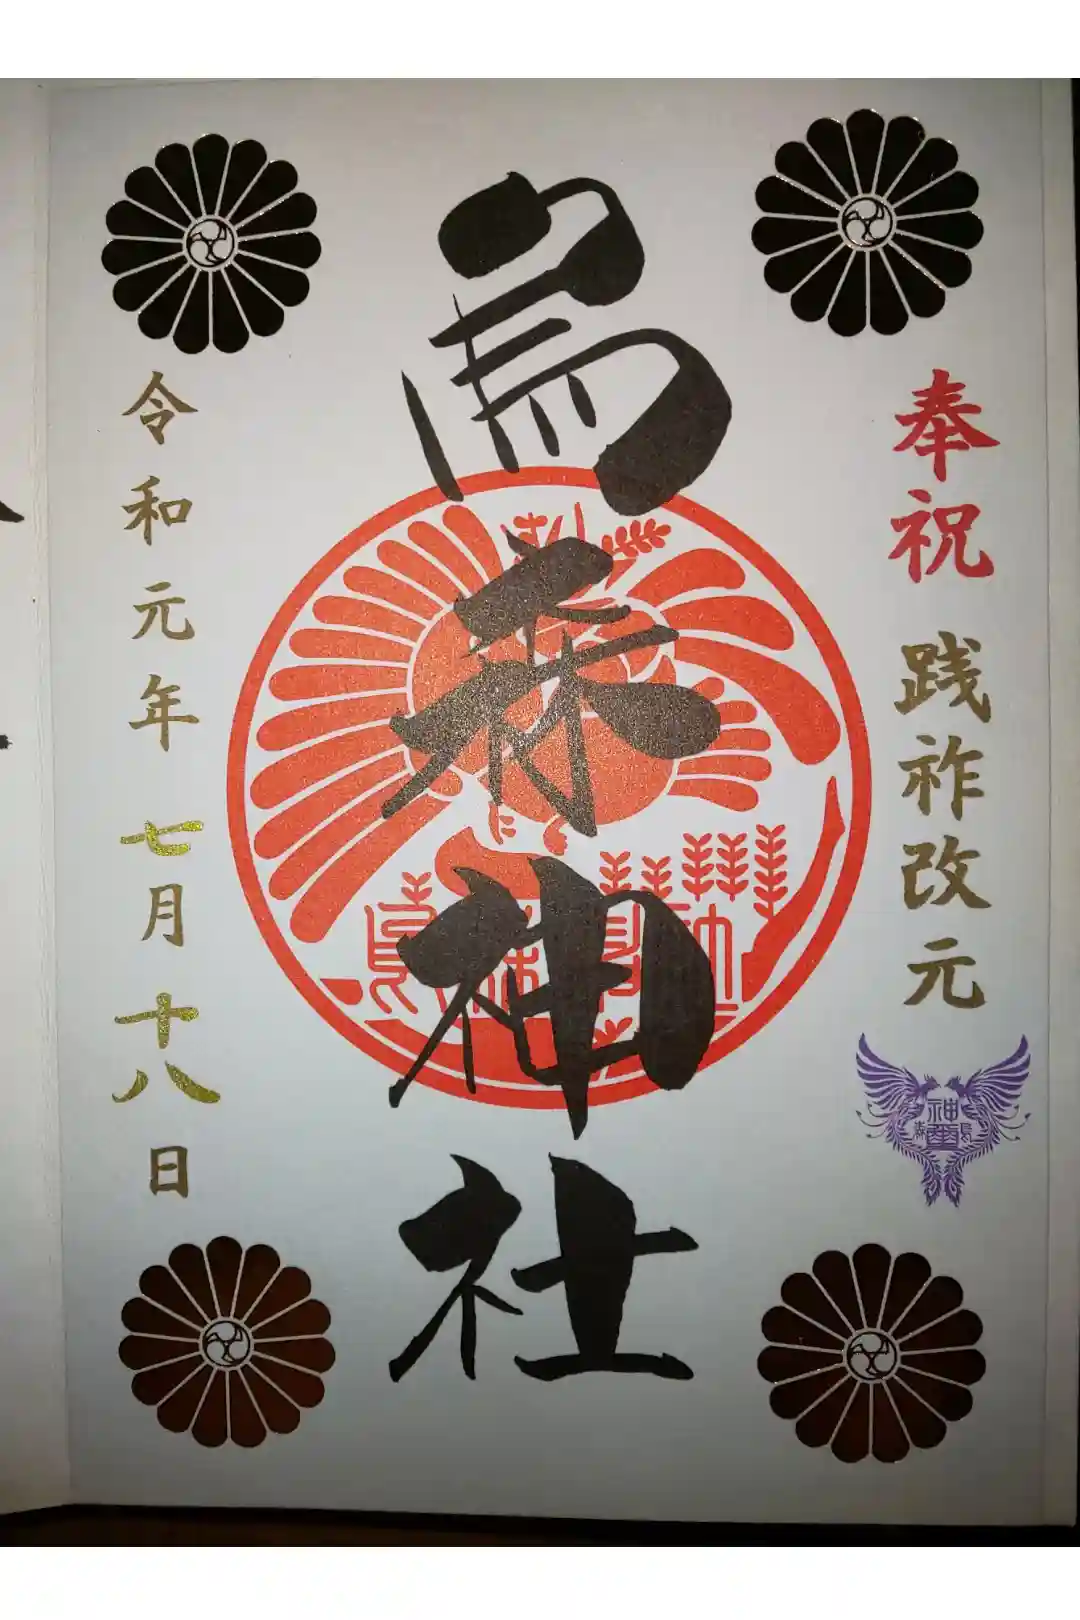 奉祝 践祚改元
烏森神社
令和元年 七月十八日